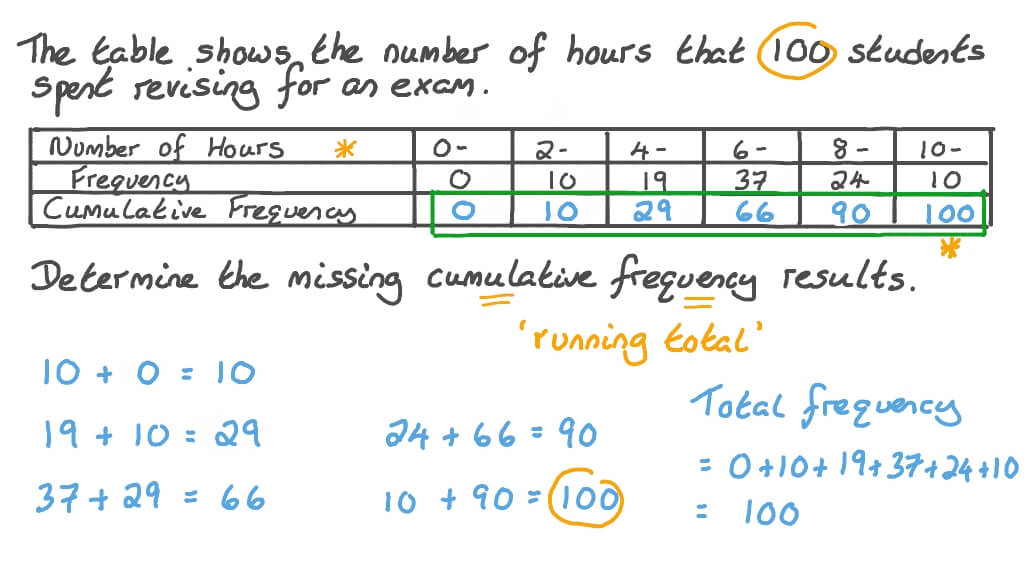 The table shows the number of hours that 100 students
spent revising for an exam.
Number of Hours * 0- 2- 4- 6- 8- 10-
Frequency 0 10 19 37 24 10
Cumulative Frequency 0 10 29 66 90 100
*
Determine the missing cumulative frequency results.
'running total'
10 + 0 = 10
19 + 10 = 29
37 + 29 = 66
24 + 66 = 90
10 + 90 = 100
Total frequency
= 0+10+19+37+24+10
= 100